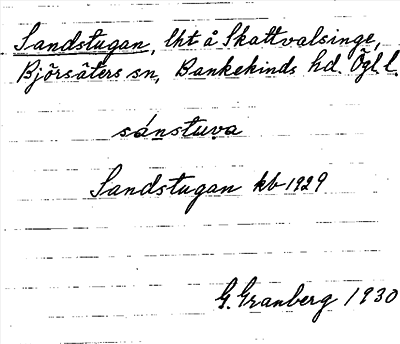 Sandstugan, lht å Skattvalsinge,
Björsäters sn, Bankekinds hd. Ögl l.
sánstuva
Sandstugan kb 1929
G. Granberg 1930